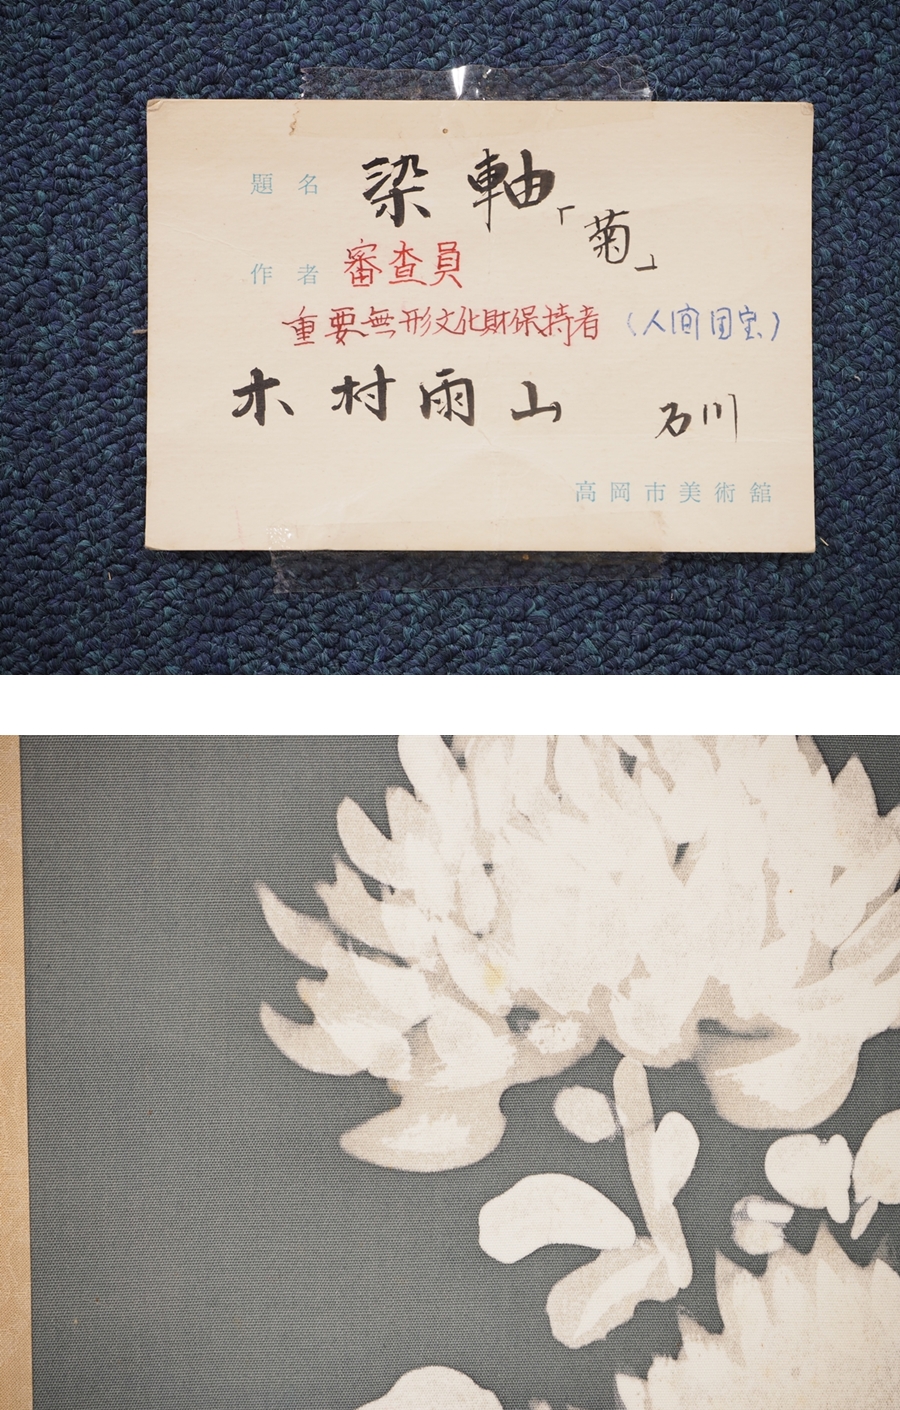 題名 染軸「菊」
作者 審査員
重要無形文化財保持者（人间国宝）
木村雨山 石川
高岡市美術館